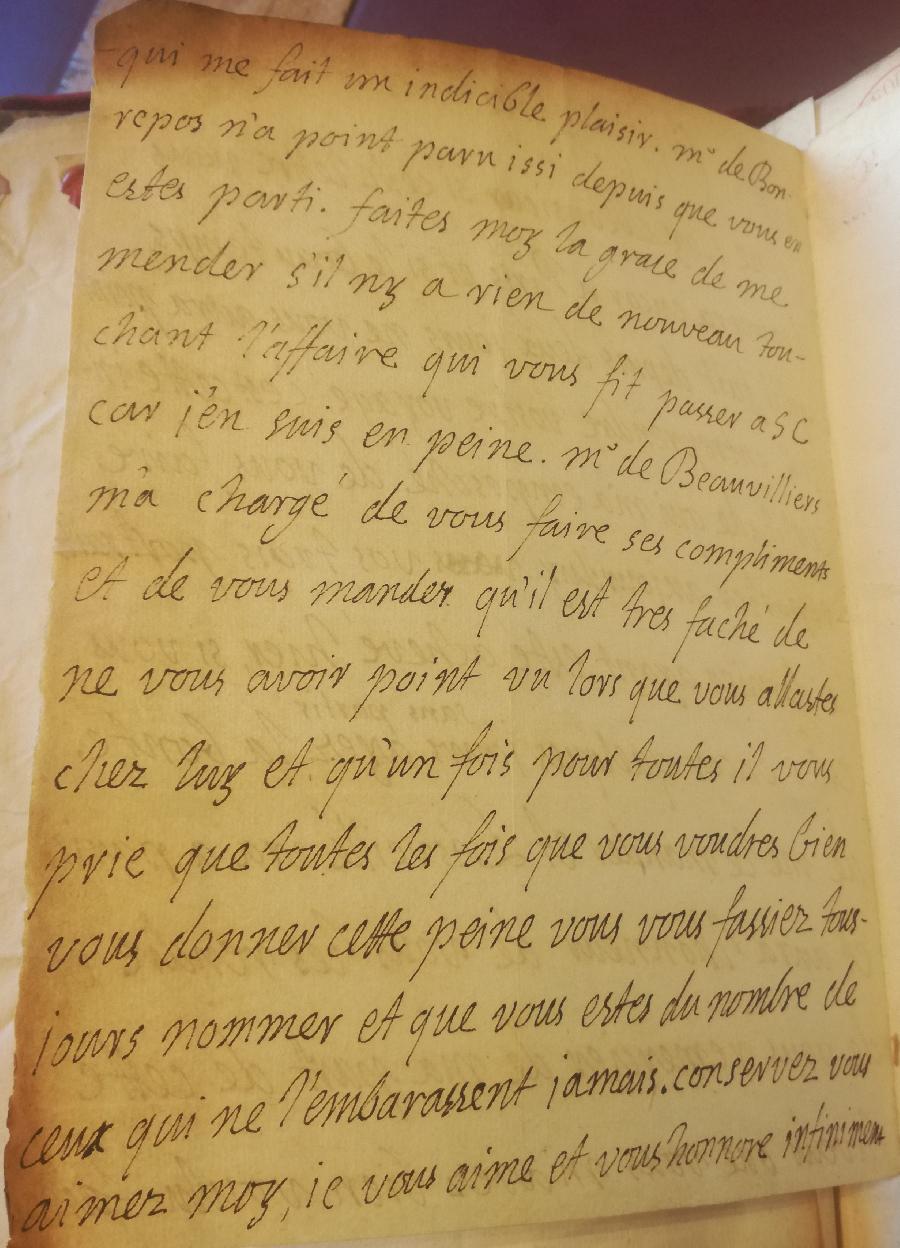 qui me fait un indicible plaisir. mr de Bon-
repos n'a point paru issi depuis que vous en
estes parti. faites moy la grace de me
mender s'il ny a rien de nouveau tou-
chant l'affaire qui vous fit passer a SC
car j'en suis en peine. mr de Beauvilliers
m'a chargé de vous faire ses compliments
et de vous mander qu'il est tres faché de
ne vous avoir point vu lors que vous allastes
chez luy et qu'un fois pour toutes il vous
prie que toutes les fois que vous voudres bien
vous donner cette peine vous vous fassiez tous-
jours nommer et que vous estes du nombre de
ceux qui ne l'embarassent jamais. conservez vous
aimez moy, je vous aime et vous honnore infiniment